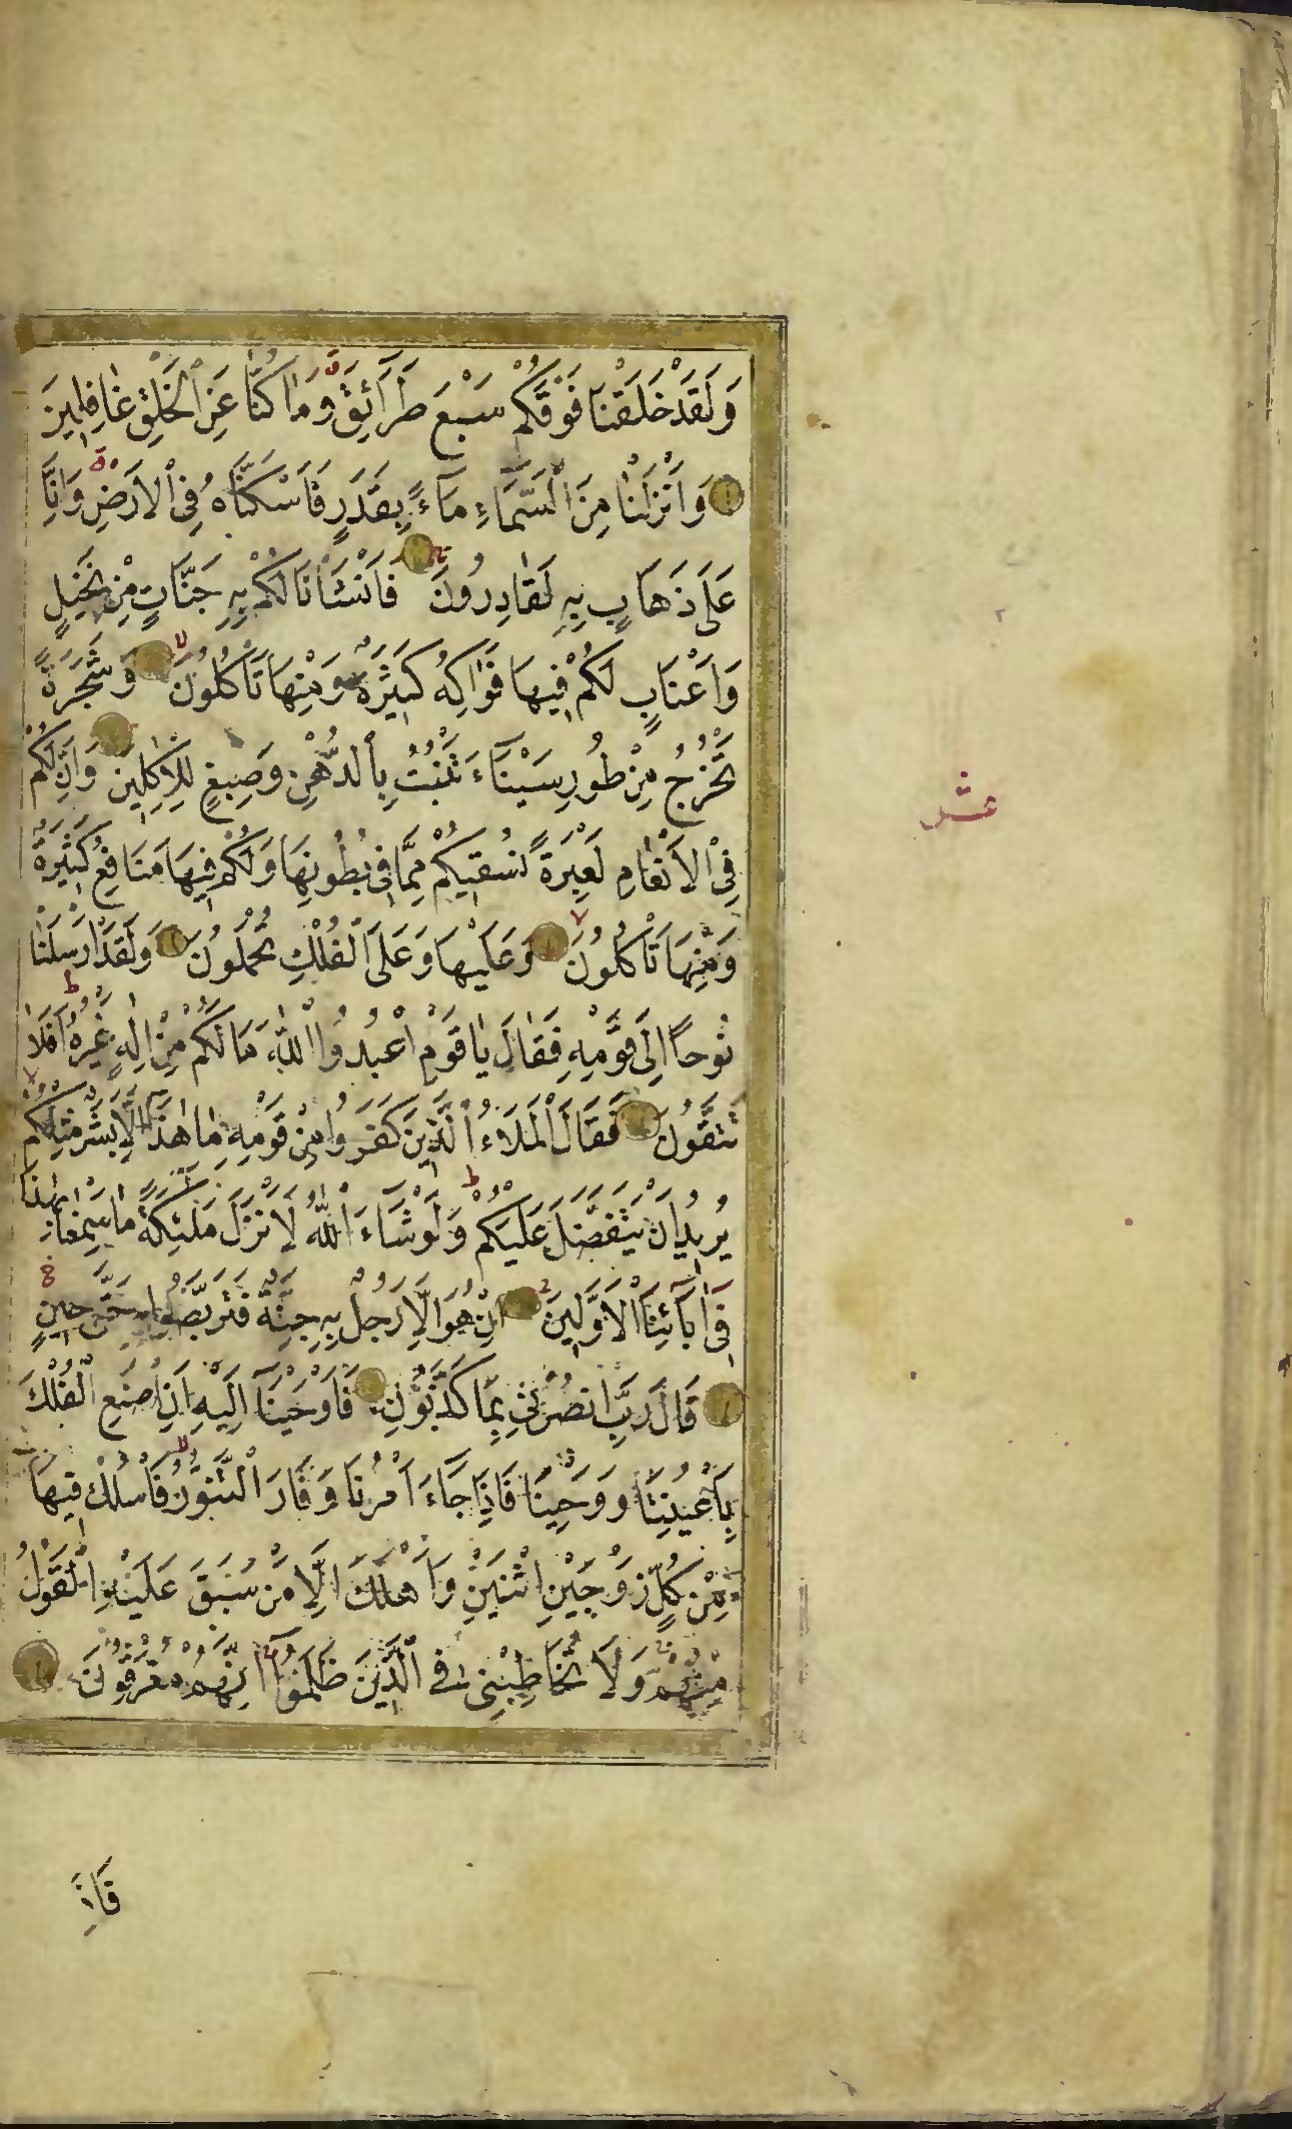 وَلَقَدْ خَلَقْنَا فَوْقَكُمْ سَبْعَ طَرَائِقَ وَمَا كُنَّا عَنِ الْخَلْقِ غَافِلِينَ
وَاَنْزَلْنَا مِنَ السَّمَاءِ مَاءً بِقَدَرٍ فَاَسْكَنَّاهُ فِى الْاَرْضِ وَاِنَّا
عَلَى ذَهَابٍ بِهِ لَقَادِرُونَ فَاَنْشَاْنَا لَكُمْ بِهِ جَنَّاتٍ مِنْ نَخِيلٍ
وَاَعْنَابٍ لَكُمْ فِيهَا فَوَاكِهُ كَثِيرَةٌ وَمِنْهَا تَاْكُلُونَ وَشَجَرَةً
تَخْرُجُ مِنْ طُورِ سَيْنَاءَ تَنْبُتُ بِالدُّهْنِ وَصِبْغٍ لِلْاٰكِلِينَ وَاِنَّ لَكُمْ
فِى الْاَنْعَامِ لَعِبْرَةً نُسْقِيكُمْ مِمَّا فِى بُطُونِهَا وَلَكُمْ فِيهَا مَنَافِعُ كَثِيرَةٌ
وَمِنْهَا تَاْكُلُونَ وَعَلَيْهَا وَعَلَى الْفُلْكِ تُحْمَلُونَ وَلَقَدْ اَرْسَلْنَا
نُوحًا اِلَى قَوْمِهِ فَقَالَ يَا قَوْمِ اعْبُدُوا اللّٰهَ مَا لَكُمْ مِنْ اِلٰهٍ غَيْرُهُ اَفَلَا
تَتَّقُونَ فَقَالَ الْمَلَاءُ الَّذِينَ كَفَرُوا مِنْ قَوْمِهِ مَا هٰذَا اِلَّا بَشَرٌ مِثْلُكُمْ
يُرِيدُ اَنْ يَتَفَضَّلَ عَلَيْكُمْ وَلَوْ شَاءَ اللّٰهُ لَاَنْزَلَ مَلٰئِكَةً مَا سَمِعْنَا بِهٰذَا
فِى اٰبَائِنَا الْاَوَّلِينَ اِنْ هُوَ اِلَّا رَجُلٌ بِهِ جِنَّةٌ فَتَرَبَّصُوا بِهِ حَتَّى حِينٍ
قَالَ رَبِّ انْصُرْنِى بِمَا كَذَّبُونِ فَاَوْحَيْنَا اِلَيْهِ اَنِ اصْنَعِ الْفُلْكَ
بِاَعْيُنِنَا وَوَحْيِنَا فَاِذَا جَاءَ اَمْرُنَا وَفَارَ التَّنُّورُ فَاسْلُكْ فِيهَا
مِنْ كُلٍّ زَوْجَيْنِ اثْنَيْنِ وَاَهْلَكَ اِلَّا مَنْ سَبَقَ عَلَيْهِ الْقَوْلُ
مِنْهُمْ وَلَا تُخَاطِبْنِى فِى الَّذِينَ ظَلَمُوا اِنَّهُمْ مُغْرَقُونَ
عشر
فَاِذَ